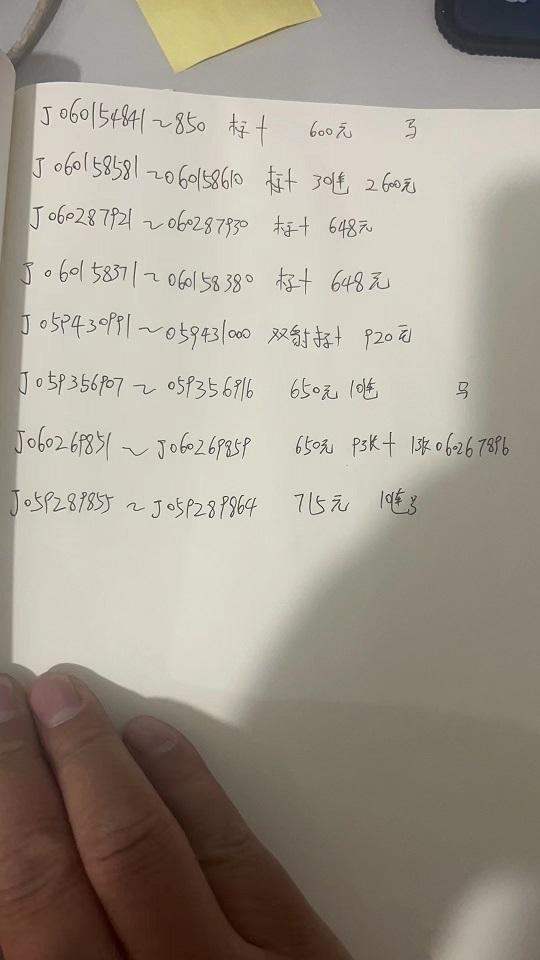 J060154841~850 标十 600元 马
J060158581~060158610 标十 30连 2600元
J060287921~060287930 标十 648元
J060158371~060158380 标十 648元
J059430991~059431000 双射标十 920元
J059356907~059356916 650元 10连 马
J060269851~J060269859 650元 9张+1张060267896
J059289855~J059289864 715元 10连号